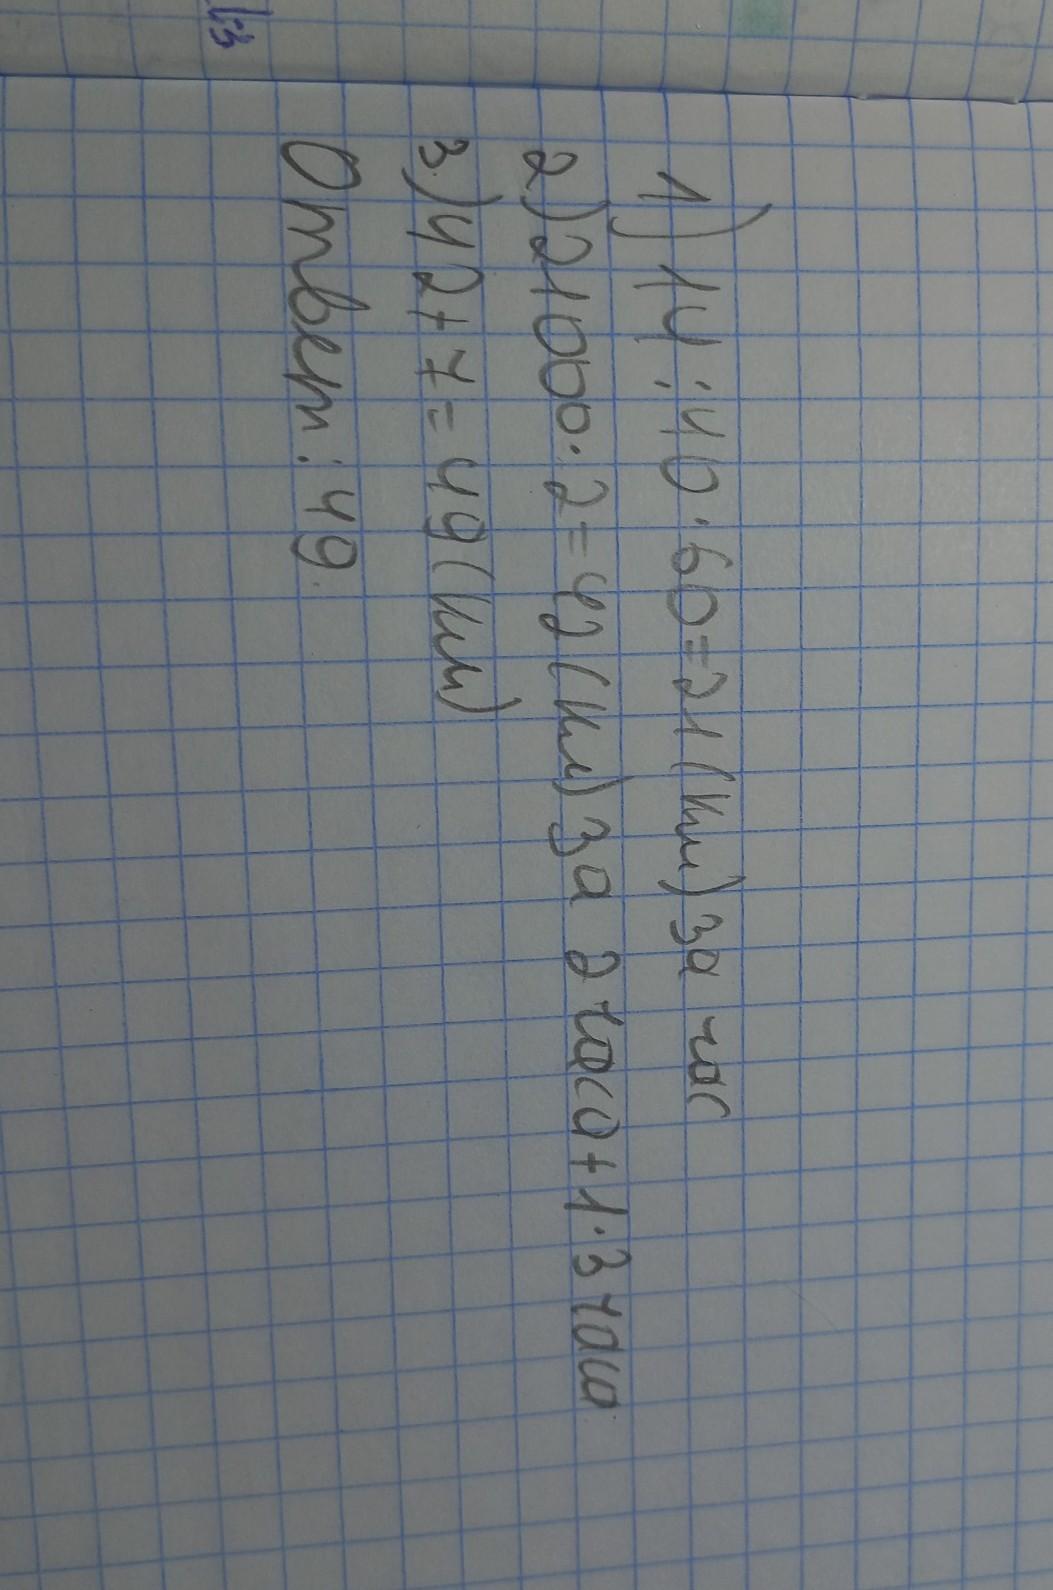 1) 14 : 40 · 60 = 21 (км) за час
2) 2100 · 2 = 42 (км) за 2 часа + 1 · 3 часа
3.) 42 + 7 = 49 (км)
Ответ: 49.